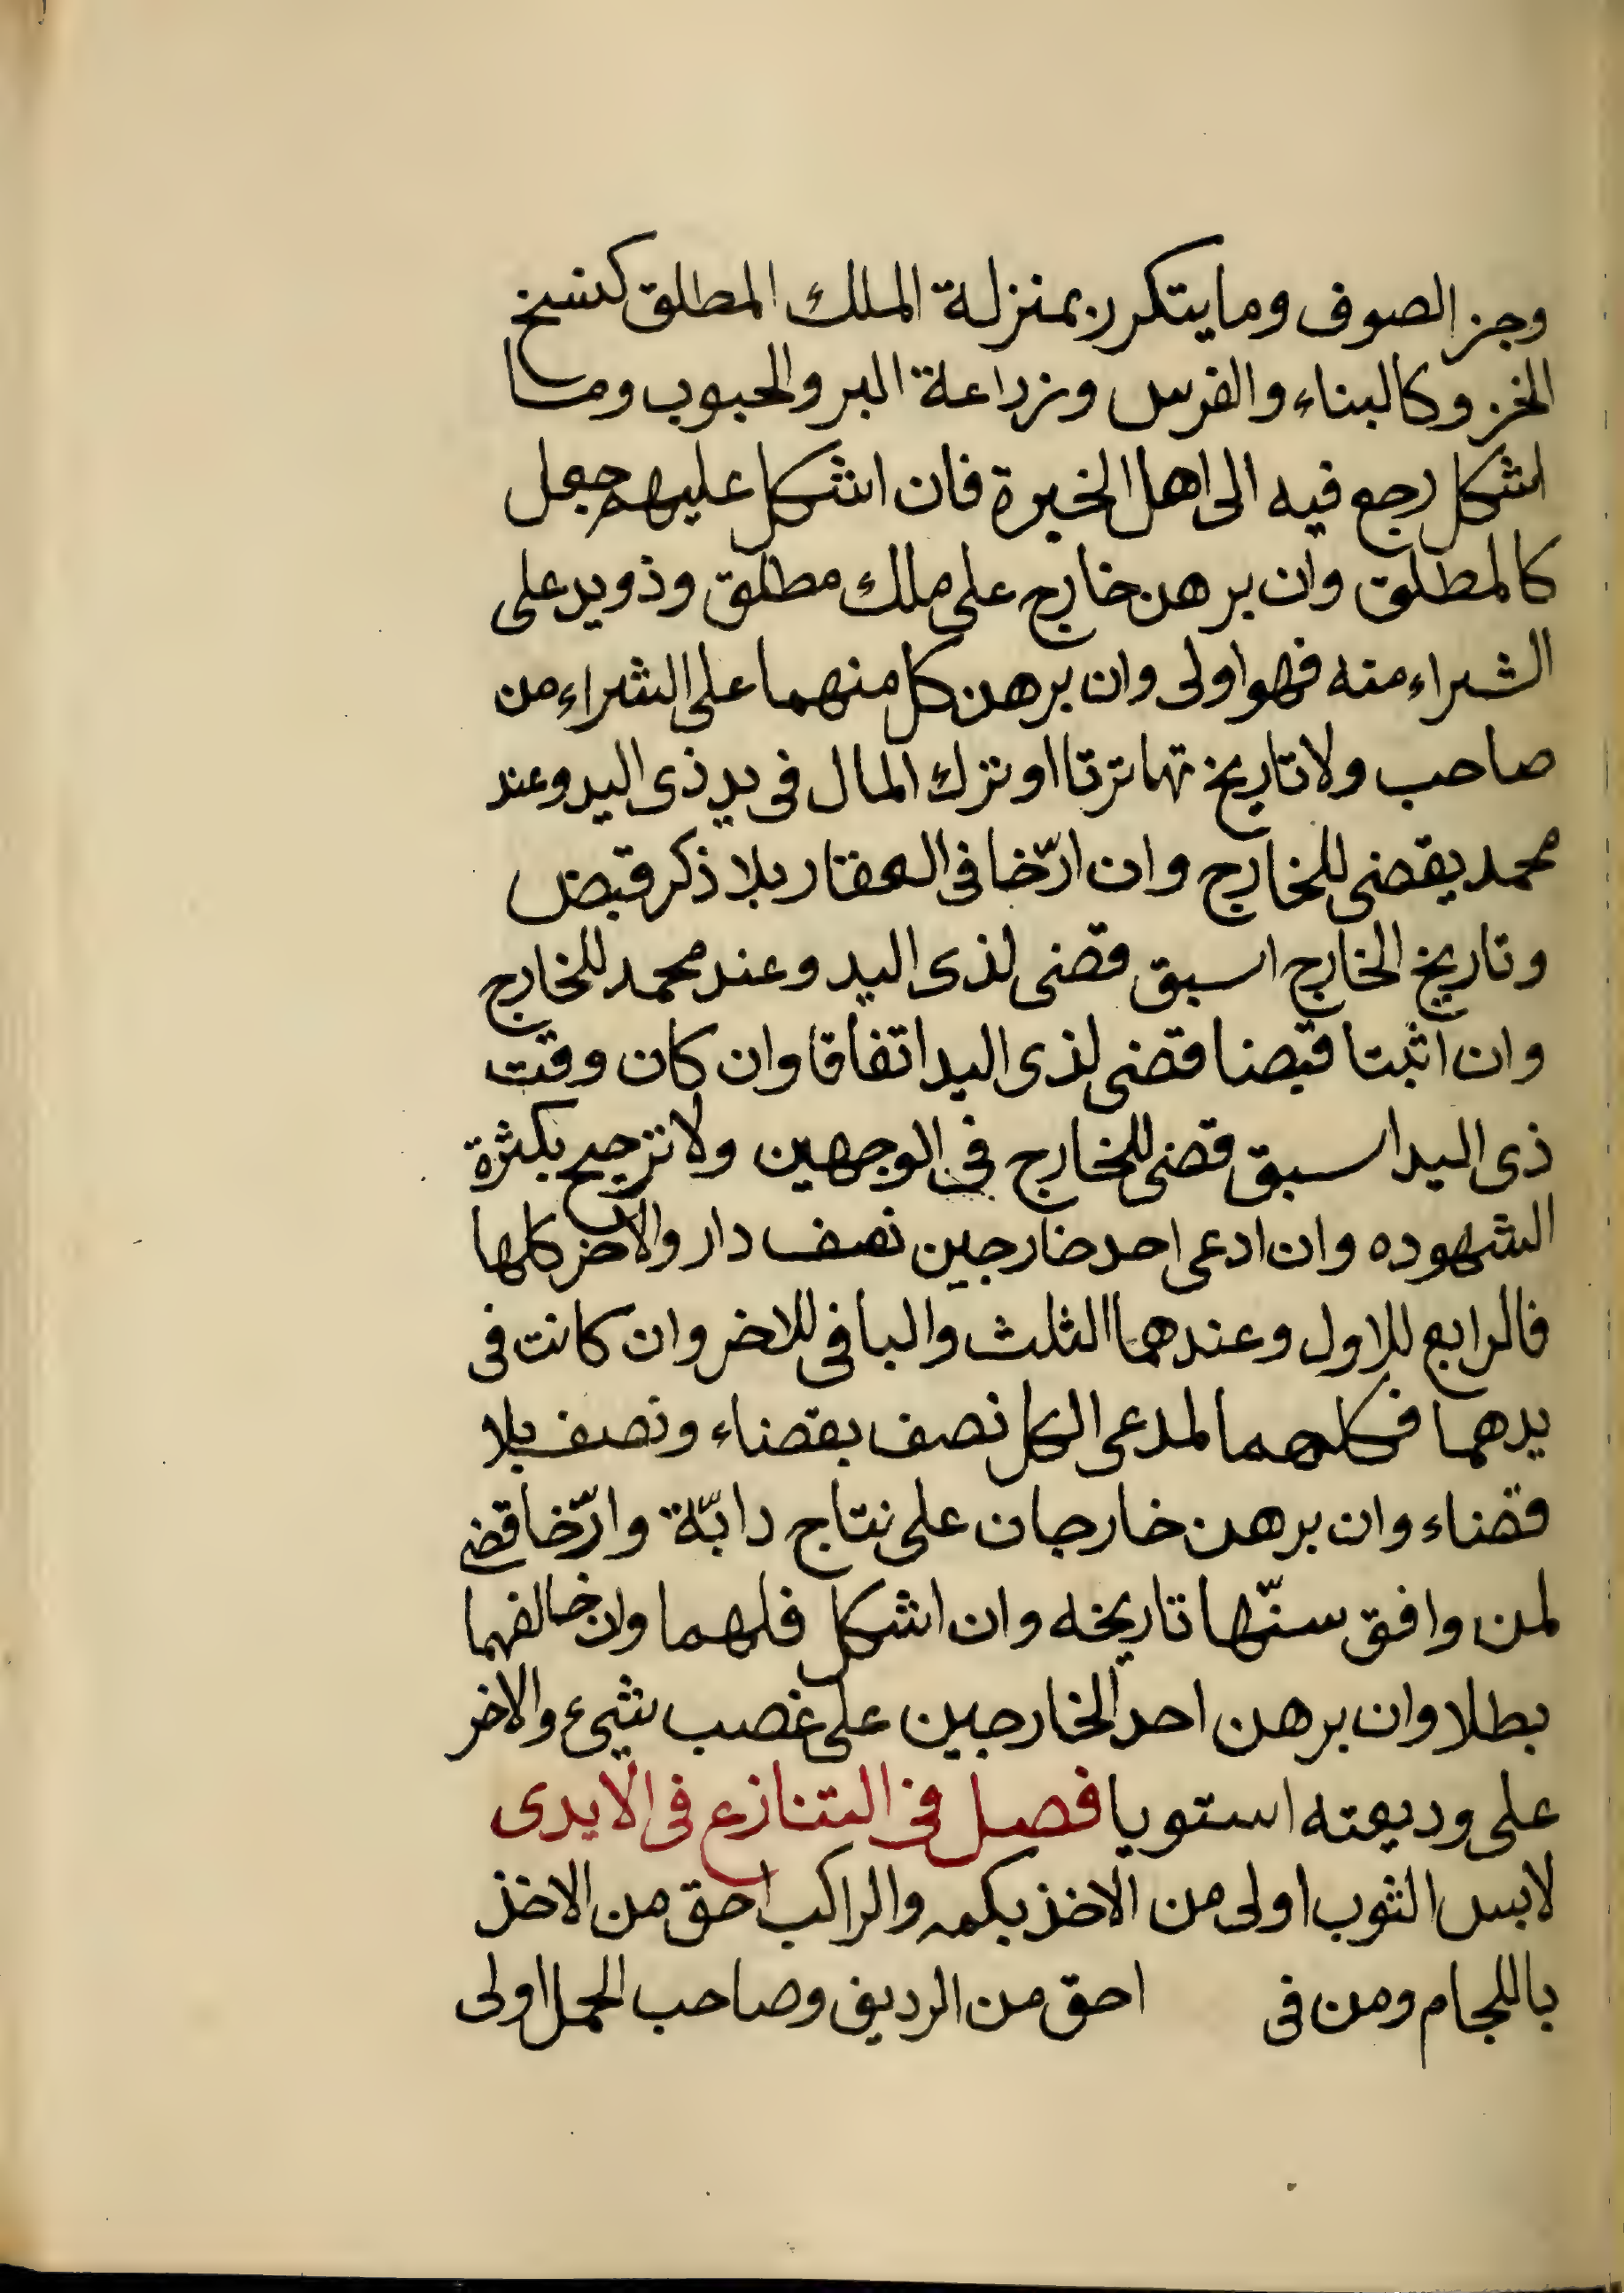 وجز الصوف وما يتكرر بمنزلة الملك المطلق كنسخ
الخز وكالبناء والفرس وزراعة البر والحبوب وما
اشكل رجع فيه الى اهل الخبرة فان اشكل عليهم جعل
كالمطلق وان برهن خارج على ملك مطلق وذو يد على
الشراء منه فهو اولى وان برهن كل منهما على الشراء من
صاحب ولا تاريخ تهاترتا او ترك المال فى يد ذى اليد وعند
محمد يقضى للخارج وان ارّخا فى العقار بلا ذكر قبض
وتاريخ الخارج اسبق قضى لذى اليد وعند محمد للخارج
وان اثبتا قبضا قضى لذى اليد اتفاقا وان كان وقت
ذى اليد اسبق قضى للخارج فى الوجهين ولا ترجيح بكثرة
الشهوده وان ادعى احد خارجين نصف دار والاخر كلها
فالرابع للاول وعندهما الثلث والباقى للاخر وان كانت فى
يدهما فكلهما لمدعى الكل نصف بقضاء ونصف بلا
قضاء وان برهن خارجان على نتاج دابّة وارّخا قضى
لمن وافق سنّها تاريخه وان اشكل فلهما وان خالفهما
بطلا وان برهن احد الخارجين على غصب شيء والاخر
على وديعته استويا فصل فى التنازع فى الايدى
لابس الثوب اولى من الاخذ بكمه والراكب احق من الاخذ
باللجام ومن فى احق من الرديف وصاحب الحمل اولى